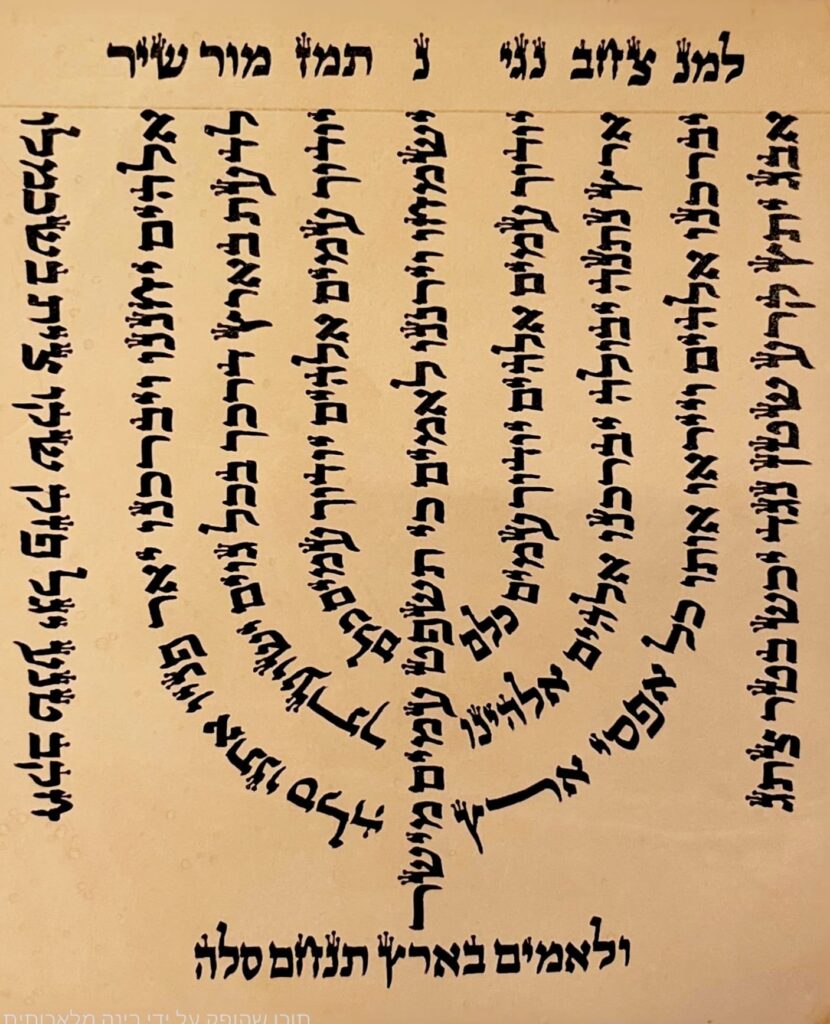 למנ צחב נגי נ תמז מור שיר
אבג יתץ קרע שטן נגד יכש בטר צתג
יברכנו אלהים וייראו אותו כל אפסי ארץ
ארץ נתנה יבולה יברכנו אלהים אלהינו
יודוך עמים אלהים יודוך עמים כלם
ישמחו וירננו לאמים כי תשפט עמים מישר
יודוך עמים אלהים יודוך עמים כלם
לדעת בארץ דרכך בכל גוים ישועתך
אלהים יחננו ויברכנו יאר פניו אתנו סלה
חקב טנע יגל פזק שקו צית בשכמלו
ולאמים בארץ תנחם סלה
תוכן שהופק על ידי בינה מלאכותית